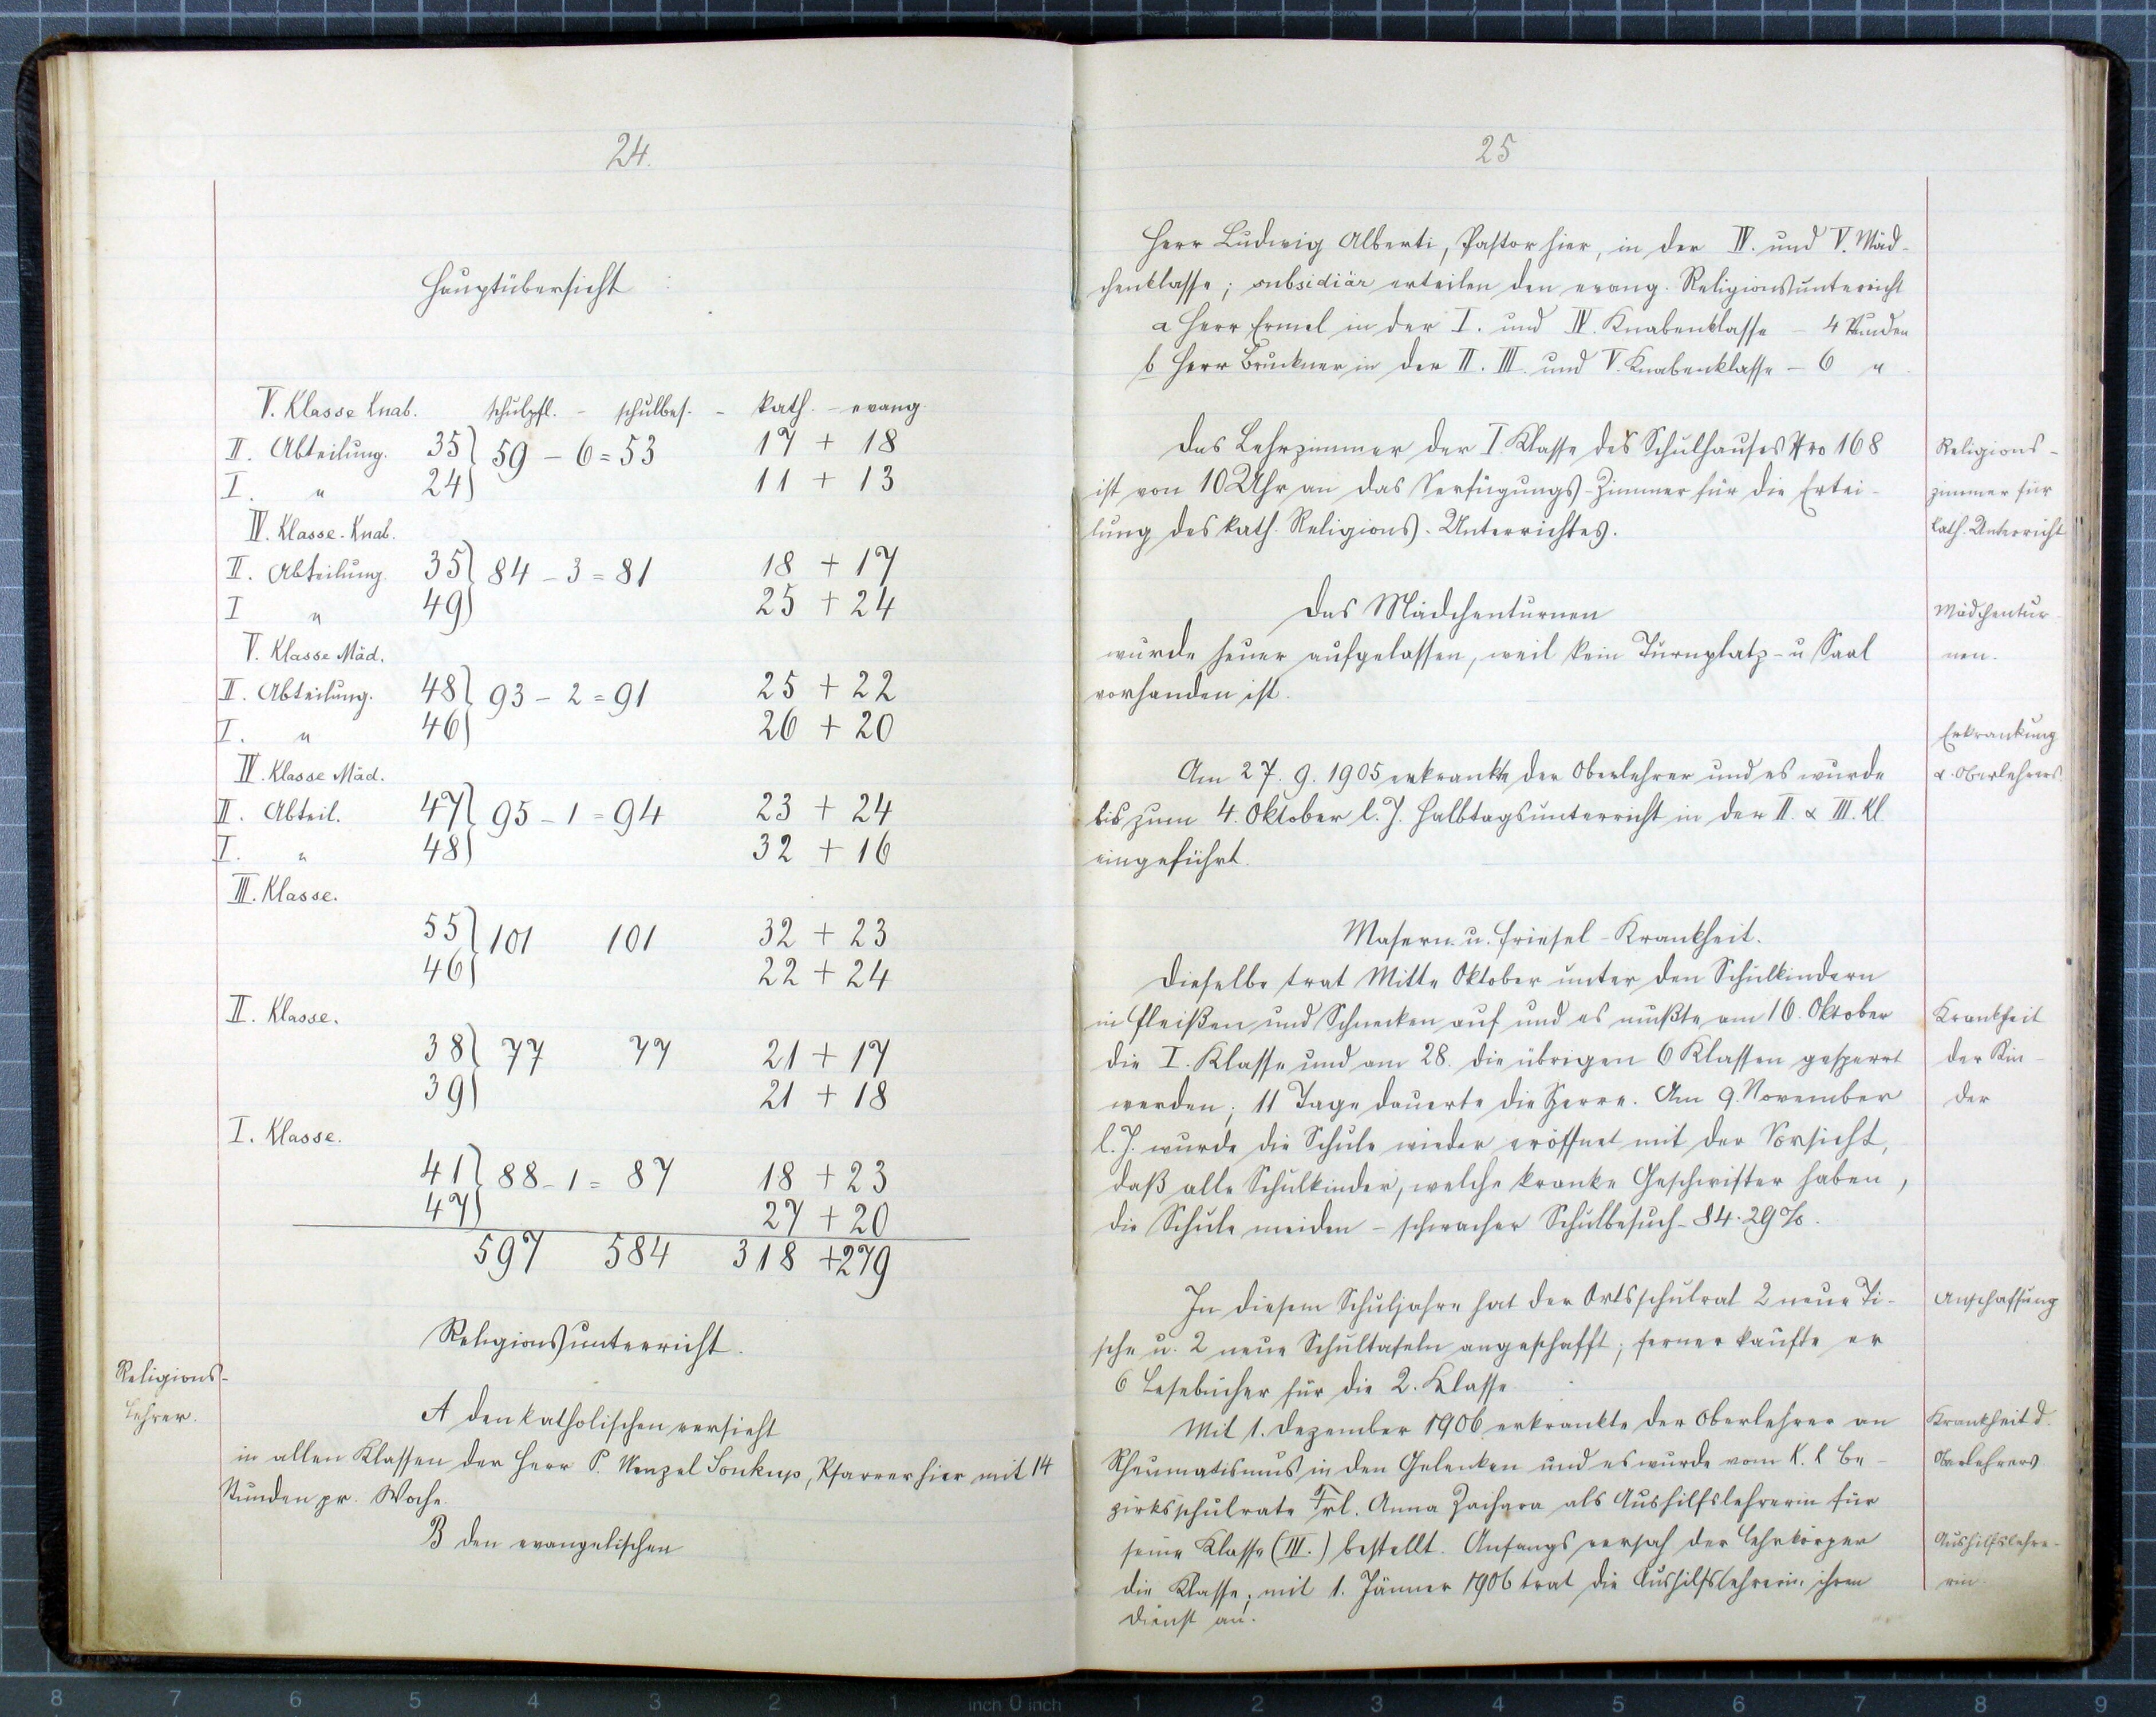 24.
Hauptübersicht
V. Klasse Knab. schulpfl. - schulbes. - kath. - evang.
II. Abteilung. 35 } 59 - 6 = 53 17 + 18
I. " 24 11 + 13
IV. Klasse. Knab.
II. Abteilung 35 } 84 - 3 = 81 18 + 17
I " 49 25 + 24
V. Klasse Mäd.
II. Abteilung. 48 } 93 - 2 = 91 25 + 22
I. " 46 26 + 20
IV. Klasse Mäd.
II. Abteil. 47 } 95 - 1 = 94 23 + 24
I. " 48 32 + 16
III. Klasse.
55 } 101 101 32 + 23
46 22 + 24
II. Klasse.
38 } 77 77 21 + 17
39 21 + 18
I. Klasse.
41 } 88 - 1 = 87 18 + 23
47 27 + 20
597 584 318 + 279
Religionsunterricht.
Religions-
lehrer.
A den katholischen versieht
in allen Klassen der Herr P. Wenzel Soukup, Pfarrer hier mit 14
Stunden pr. Woche.
B den evangelischen
25
Herr Ludwig Alberti, Pastor hier, in der IV. und V. Mäd-
chenklasse; subsidiär erteilen den evang. Religionsunterricht
a Herr Ermel in der I. und IV. Knabenklasse - 4 Stunden
b Herr Bruckner in der II. III. und V. Knabenklasse - 6 "
Das Lehrzimmer der I. Klasse des Schulhauses Nro 168
ist von 10 Uhr an das Verfügungs-Zimmer für die Ertei-
lung des kath. Religions-Unterrichtes.
Religions-
zimmer für
kath. Unterricht
Das Mädchenturnen
wurde heuer aufgelassen, weil kein Turnplatz- u Saal
vorhanden ist.
Mädchentur-
nen.
Erkrankung
d. Oberlehrers.
Am 27. 9. 1905 erkrankte der Oberlehrer und es wurde
bis zum 4. Oktober l. J. Halbtagsunterricht in der II. & III. Kl
eingeführt.
Masern u. Friesel-Krankheit.
Dieselbe trat Mitte Oktober unter den Schulkindern
in Fleißen und Schnecken auf und es mußte am 16. Oktober
die I. Klasse und am 28. die übrigen 6 Klassen gesperrt
werden; 11 Tage dauerte die Sperre. Am 9. November
l. J. wurde die Schule wieder eröffnet mit der Vorsicht,
daß alle Schulkinder, welche kranke Geschwister haben,
die Schule meiden - schwacher Schulbesuch - 84·29%.
Krankheit
der Kin-
der
In diesem Schuljahre hat der Ortsschulrat 2 neue Ti-
sche u. 2 neue Schultafeln angeschafft; ferner kaufte er
6 Lesebücher für die 2. Klasse
Anschaffung
Mit 1. Dezember 1906 erkrankte der Oberlehrer an
Rheumatismus in den Gelenken und es wurde vom K. k Be-
zirksschulrate Frl. Anna als Aushilfslehrerin für
seine Klasse (III.) bestellt. Anfangs versah der Lehrkörper
die Klasse; mit 1. Jänner 1906 trat die Aushilfslehrerin ihren
Dienst an.
Krankheit d.
Oberlehrers
Aushilfslehre-
rin
8 7 6 5 4 3 2 1 inch 0 inch 1 2 3 4 5 6 7 8 9